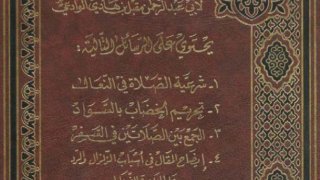 لأبي عبد الرحمن مقبل بن هادي الوادعي
يحتوي على الرسائل التالية:
١- شرعية الصلاة في النعال
٢- تحريم الخضاب بالسواد
٣- الجمع بين الصلاتين في السفر
٤- إيضاح المقال في أسباب الزلزال والرد